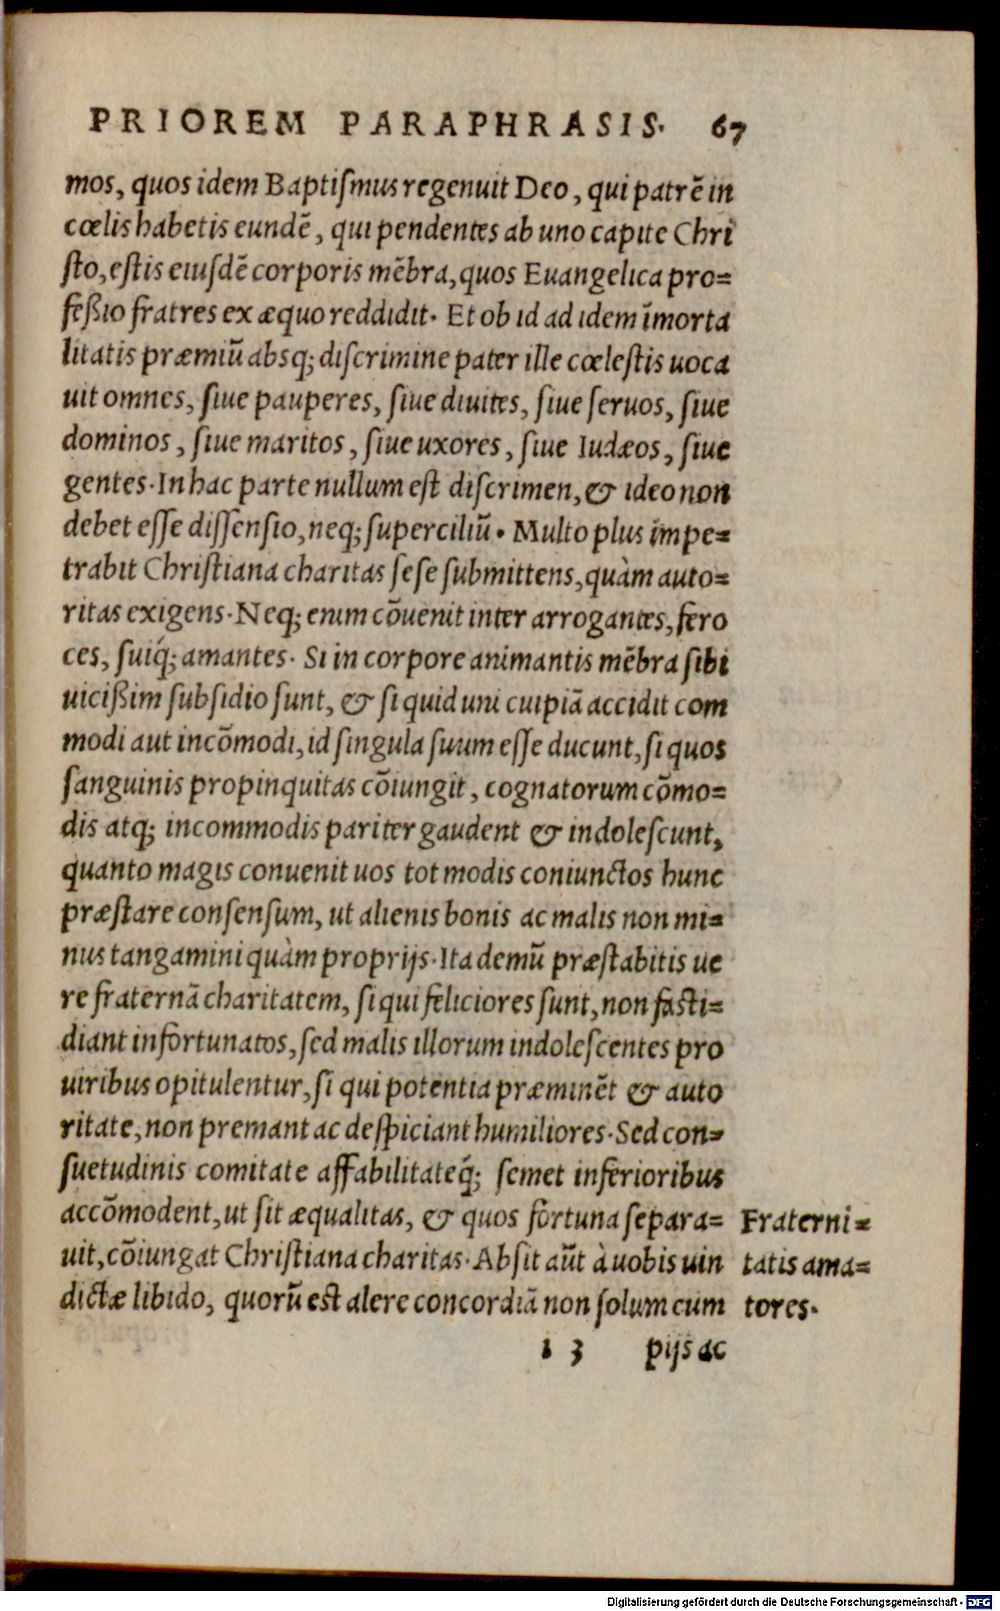 PRIOREM PARAPHRASIS. 67
mos, quos idem Baptiſmus regenuit Deo, qui patrẽ in
cœlis habetis eundẽ, qui pendentes ab uno capite Chri
ſto, eſtis eiuſdẽ corporis mẽbra, quos Euangelica pro=
feßio fratres ex æquo reddidit. Et ob id ad idem ĩmorta
litatis præmiũ absq; diſcrimine pater ille cœleſtis uoca
uit omnes, ſiue pauperes, ſiue diuites, ſiue ſeruos, ſiue
dominos, ſiue maritos, ſiue uxores, ſiue Iudæos, ſiue
gentes. In hac parte nullum eſt diſcrimen, & ideo non
debet eſſe diſſenſio, neq; ſuperciliũ. Multo plus impe=
trabit Chriſtiana charitas ſeſe ſubmittens, quàm auto=
ritas exigens. Neq; enim cõuenit inter arrogantes, fero
ces, ſuiq́; amantes. Si in corpore animantis mẽbra ſibi
uicißim ſubſidio ſunt, & ſi quid uni cuipiã accidit com
modi aut incõmodi, id ſingula ſuum eſſe ducunt, ſi quos
ſanguinis propinquitas cõiungit, cognatorum cõmo=
dis atq; incommodis pariter gaudent & indoleſcunt,
quanto magis conuenit uos tot modis coniunctos hunc
præſtare conſenſum, ut alienis bonis ac malis non mi=
nus tangamini quàm proprijs. Ita demũ præſtabitis ue
re fraternã charitatem, ſi qui feliciores ſunt, non faſti=
diant infortunatos, ſed malis illorum indoleſcentes pro
uiribus opitulentur, ſi qui potentia præminẽt & auto
ritate, non premant ac deſpiciant humiliores. Sed con=
ſuetudinis comitate affabilitateq́; ſemet inferioribus
accõmodent, ut ſit æqualitas, & quos fortuna ſepara=
uit, cõiungat Chriſtiana charitas. Abſit aũt à uobis uin
dictæ libido, quorũ eſt alere concordiã non ſolum cum
Fraterni=
tatis ama=
tores.
1 3 pijs ac
Digitalisierung gefördert durch die Deutsche Forschungsgemeinschaft - DFG